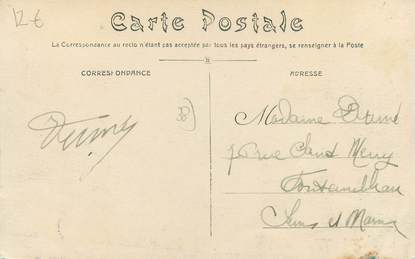 12€
Carte Postale
La Correspondance au recto n'étant pas acceptée par tous les pays étrangers, se renseigner à la Poste
CORRESPONDANCE
ADRESSE
Madame
7 rue
Fontainebleau
Seine et Marne